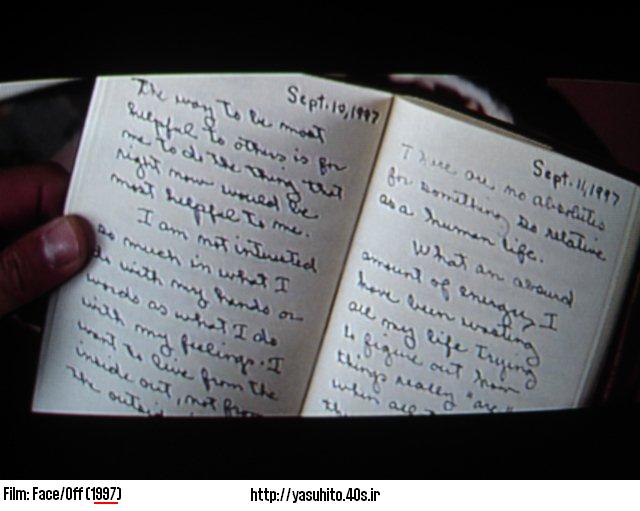 Sept. 10, 1997
The way to be most
helpful to others is for
me to do the thing that
right now would be
most helpful to me.
I am not interested
so much in what I
do with my hands or
words as what I do
with my feelings. I
want to live from the
inside out, not from
the outside
Sept. 11, 1997
There are no absolutes
for something so relative
as a human life.
What an absurd
amount of energy I
have been wasting
all my life trying
to figure out how
things really "are"
when all
Film: Face/Off (1997)
http://yasuhito.40s.ir